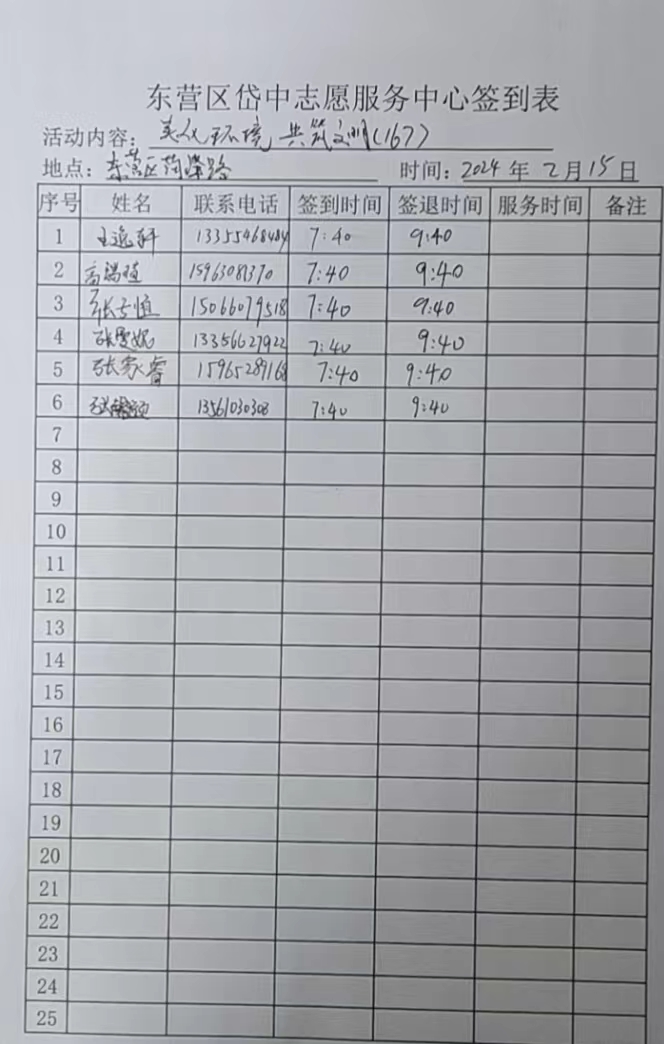 东营区岱中志愿服务中心签到表
活动内容：美化环境 共筑文明(167)
地点：东营区 路 时间：2024年2月15日
序号 姓名 联系电话 签到时间 签退时间 服务时间 备注
1 王逸轩 13355468484 7:40 9:40
2 高 7:40 9:40
3 张 恒 15066079518 7:40 9:40
4 张 妮 13356627922 7:40 9:40
5 张家睿 15965289168 7:40 9:40
6 张 7:40 9:40
7
8
9
10
11
12
13
14
15
16
17
18
19
20
21
22
23
24
25